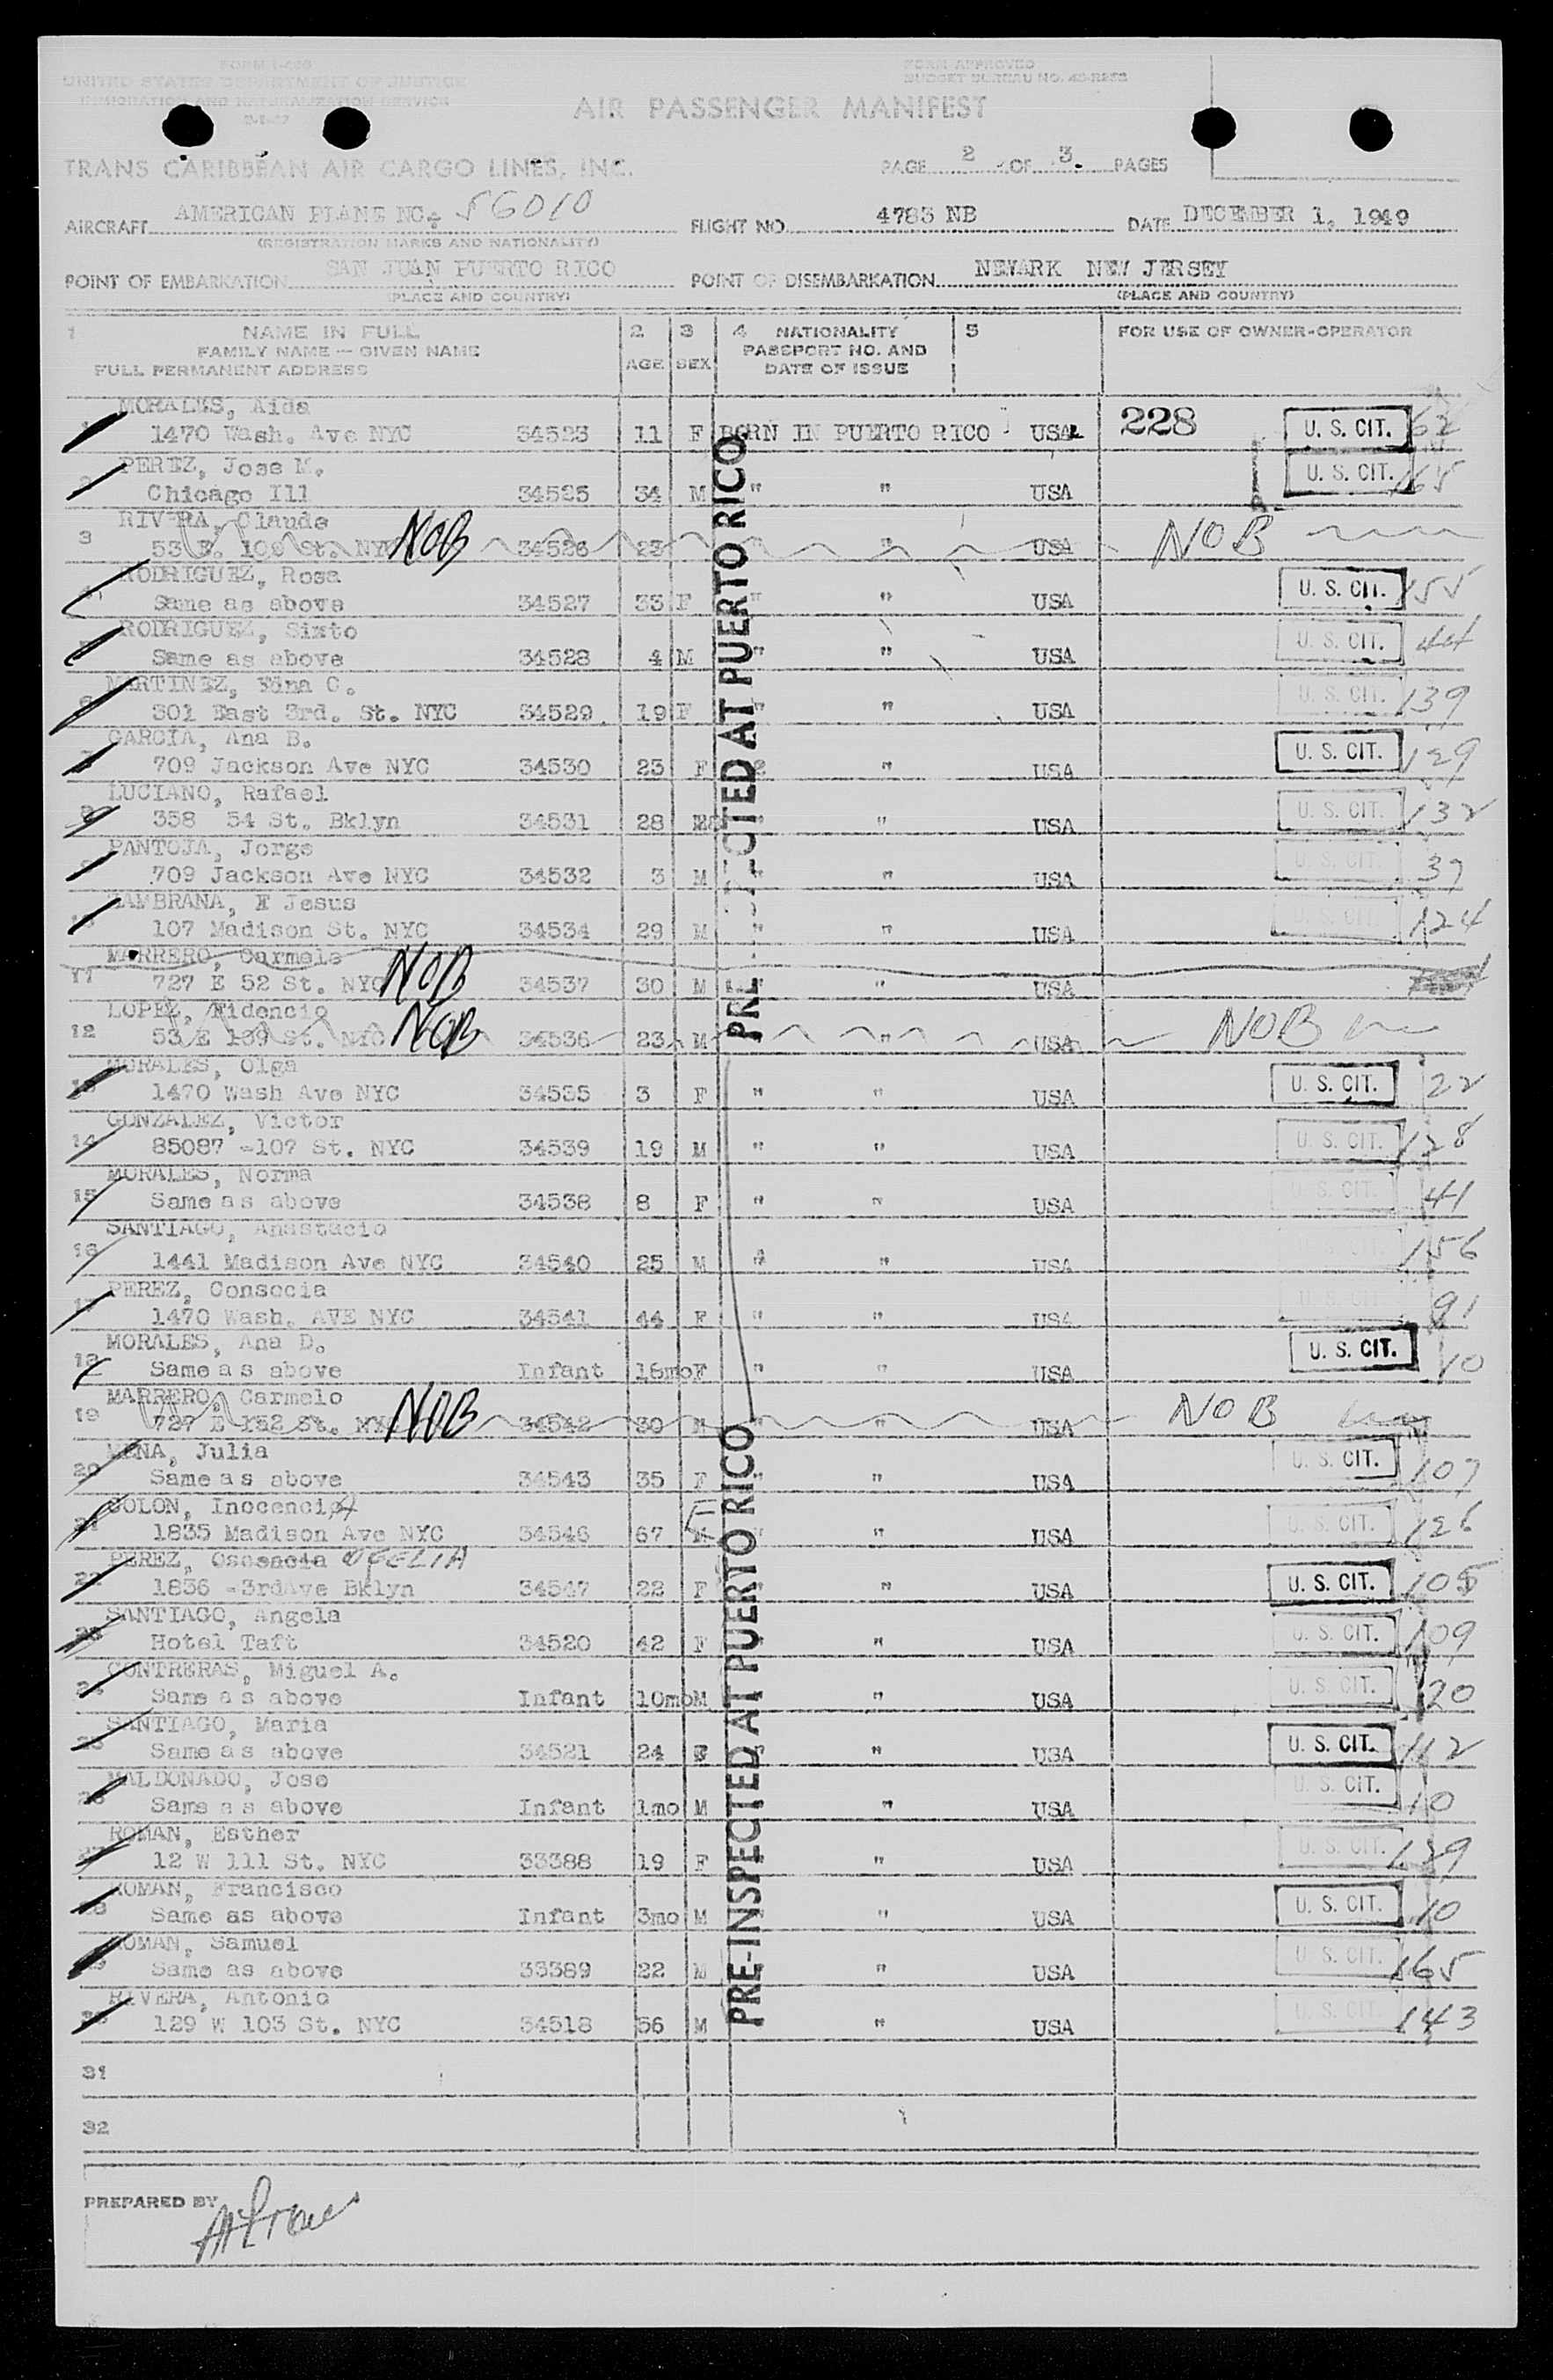 FORM I-466
UNITED STATES DEPARTMENT OF JUSTICE
IMMIGRATION AND NATURALIZATION SERVICE
FORM APPROVED
BUDGET BUREAU NO. 43-R253
AIR PASSENGER MANIFEST
TRANS CARIBBEAN AIR CARGO LINES, INC.
PAGE 2 OF 3. PAGES
AIRCRAFT AMERICAN PLANE NO. 56010 FLIGHT NO. 4783 NB DATE DECEMBER 1, 1949
(REGISTRATION MARKS AND NATIONALITY)
POINT OF EMBARKATION SAN JUAN PUERTO RICO POINT OF DISEMBARKATION NEWARK NEW JERSEY
(PLACE AND COUNTRY) (PLACE AND COUNTRY)
1 NAME IN FULL 2 3 4 NATIONALITY 5 FOR USE OF OWNER-OPERATOR
FAMILY NAME — GIVEN NAME PASSPORT NO. AND
FULL PERMANENT ADDRESS AGE SEX DATE OF ISSUE
MORALES, Aida
1470 Wash. Ave NYC 34523 11 F BORN IN PUERTO RICO USA 228 U. S. CIT. 62
PEREZ, Jose M.
Chicago Ill 34525 34 M " " USA U. S. CIT. 165
RIVERA, Claude
3 53 E. 109 St. NYC NOB 34526 23 " " USA NOB
RODRIGUEZ, Rosa
Same as above 34527 33 F " " USA U. S. CIT. 155
RODRIGUEZ, Sixto
Same as above 34528 4 M " " USA U. S. CIT. 44
MARTINEZ, Edna C.
6 301 East 3rd. St. NYC 34529 19 F " " USA U. S. CIT. 139
GARCIA, Ana B.
709 Jackson Ave NYC 34530 23 F " USA U. S. CIT. 129
LUCIANO, Rafael
358 54 St. Bklyn 34531 28 " " USA U. S. CIT. 132
PANTOJA, Jorge
709 Jackson Ave NYC 34532 3 M " " USA U. S. CIT. 37
ZAMBRANA, Jesus
107 Madison St. NYC 34534 29 M " " USA U. S. CIT. 124
MARRERO, Carmelo
11 727 E 52 St. NYC NOB 34537 30 M " " USA
LOPEZ, Fidencio
12 53 E 109 St. NYC NOB 34536 23 M " USA NOB
MORALES, Olga
13 1470 Wash Ave NYC 34535 3 F " " USA U. S. CIT. 22
GONZALEZ, Victor
14 85087 -107 St. NYC 34539 19 M " " USA U. S. CIT. 128
MORALES, Norma
15 Same as above 34538 8 F " " USA U. S. CIT. 41
SANTIAGO, Anastacio
16 1441 Madison Ave NYC 34540 25 M " " USA 156
PEREZ, Consocia
17 1470 Wash. AVE NYC 34541 44 F " " USA U. S. CIT. 91
MORALES, Ana D.
18 Same as above Infant 18mo F " " USA U. S. CIT. 10
MARRERO, Carmelo
19 727 E 152 St. NYC NOB 34542 30 M " " USA NOB
MENA, Julia
20 Same as above 34543 35 F " " USA U. S. CIT. 107
COLON, Inocencia
21 1835 Madison Ave NYC 34546 67 F " " USA U. S. CIT. 126
PEREZ, Oscencia OFELIA
22 1836 -3rdAve Bklyn 34547 22 F " " USA U. S. CIT. 105
SANTIAGO, Angela
23 Hotel Taft 34520 42 F " USA U. S. CIT. 109
CONTRERAS, Miguel A.
24 Same as above Infant 10mo M " USA U. S. CIT. 20
SANTIAGO, Maria
25 Same as above 34521 24 F " USA U. S. CIT. 112
MALDONADO, Jose
26 Same as above Infant 1mo M " USA U. S. CIT. 10
ROMAN, Esther
27 12 W 111 St. NYC 33388 19 F " USA U. S. CIT. 139
ROMAN, Francisco
28 Same as above Infant 3mo M " USA U. S. CIT. 10
ROMAN, Samuel
Same as above 33389 22 M " USA U. S. CIT. 165
RIVERA, Antonio
30 129 W 103 St. NYC 34518 56 M " USA U. S. CIT. 143
31
32
PRE-INSPECTED AT PUERTO RICO
PRE-INSPECTED AT PUERTO RICO
PREPARED BY